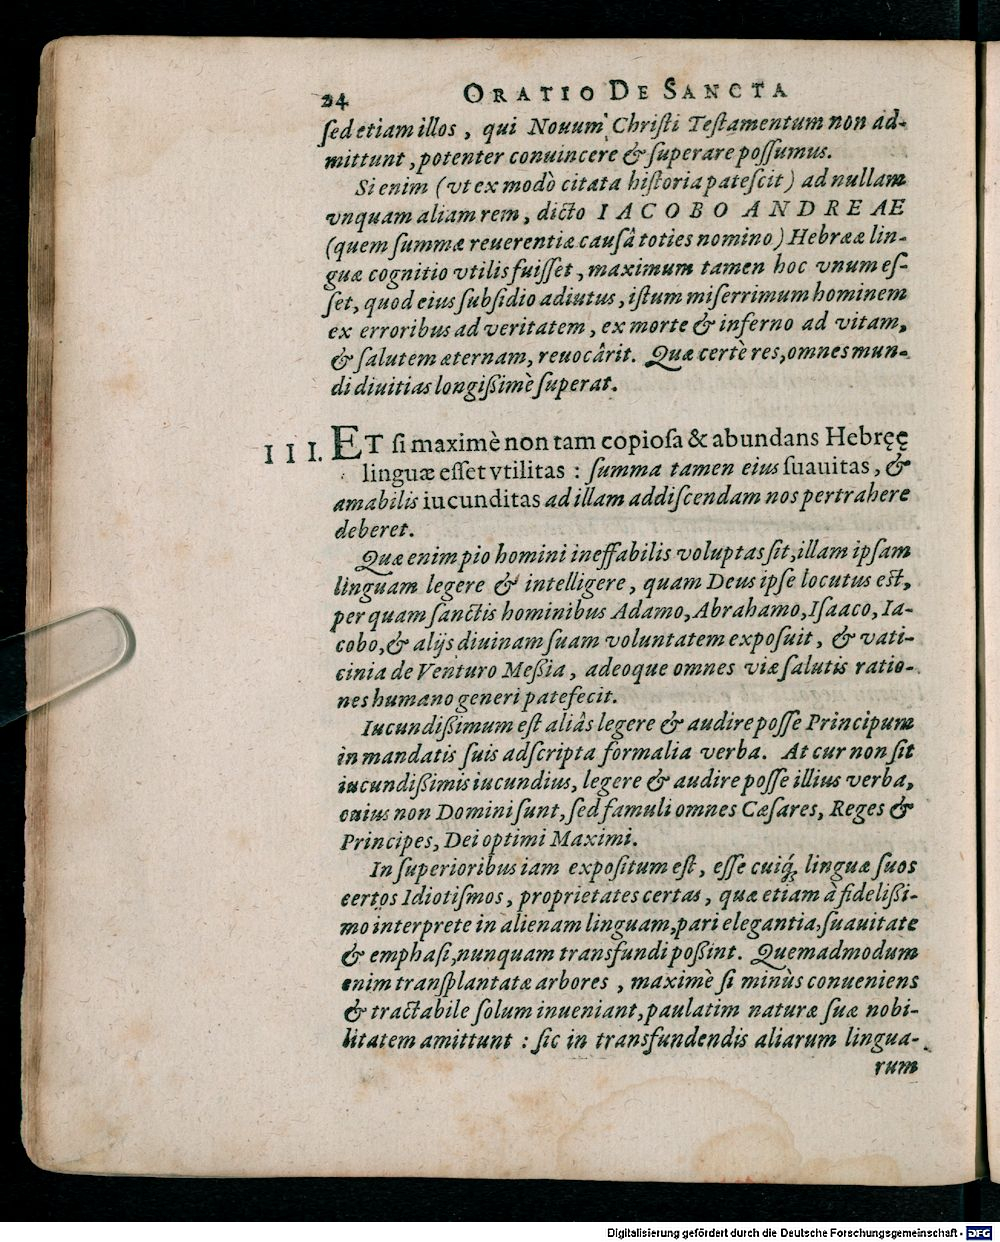 24 ORATIO DE SANCTA
ſed etiam illos, qui Nouum Chriſti Teſtamentum non ad-
mittunt, potenter conuincere & ſuperare poſſumus.
Si enim (vt ex modò citata hiſtoria pateſcit) ad nullam
vnquam aliam rem, dicto IACOBO ANDREAE
(quem ſummæ reuerentiæ causâ toties nomino) Hebrææ lin-
guæ cognitio vtilis fuiſſet, maximum tamen hoc vnum eſ-
ſet, quod eius ſubſidio adiutus, iſtum miſerrimum hominem
ex erroribus ad veritatem, ex morte & inferno ad vitam,
& ſalutem æternam, reuocârit. Quæ certè res, omnes mun-
di diuitias longißimè ſuperat.
III. ET ſi maximè non tam copioſa & abundans Hebręę
linguæ eſſet vtilitas : ſumma tamen eius ſuauitas, &
amabilis iucunditas ad illam addiſcendam nos pertrahere
deberet.
Quæ enim pio homini ineffabilis voluptas ſit, illam ipſam
linguam legere & intelligere, quam Deus ipſe locutus eſt,
per quam ſanctis hominibus Adamo, Abrahamo, Iſaaco, Ia-
cobo, & alijs diuinam ſuam voluntatem expoſuit, & vati-
cinia de Venturo Meßia, adeoque omnes viæ ſalutis ratio-
nes humano generi patefecit.
Iucundißimum eſt aliâs legere & audire poſſe Principum
in mandatis ſuis adſcripta formalia verba. At cur non ſit
iucundißimis iucundius, legere & audire poſſe illius verba,
cuius non Domini ſunt, ſed famuli omnes Cæſares, Reges &
Principes, Dei optimi Maximi.
In ſuperioribus iam expoſitum eſt, eſſe cuiq́; linguæ ſuos
certos Idiotiſmos, proprietates certas, quæ etiam à fidelißi-
mo interprete in alienam linguam, pari elegantia, ſuauitate
& emphaſi, nunquam transfundi poßint. Quemadmodum
enim tranſplantatæ arbores, maximè ſi minùs conueniens
& tractabile ſolum inueniant, paulatim naturæ ſuæ nobi-
litatem amittunt : ſic in transfundendis aliarum lingua-
rum
Digitalisierung gefördert durch die Deutsche Forschungsgemeinschaft - DFG